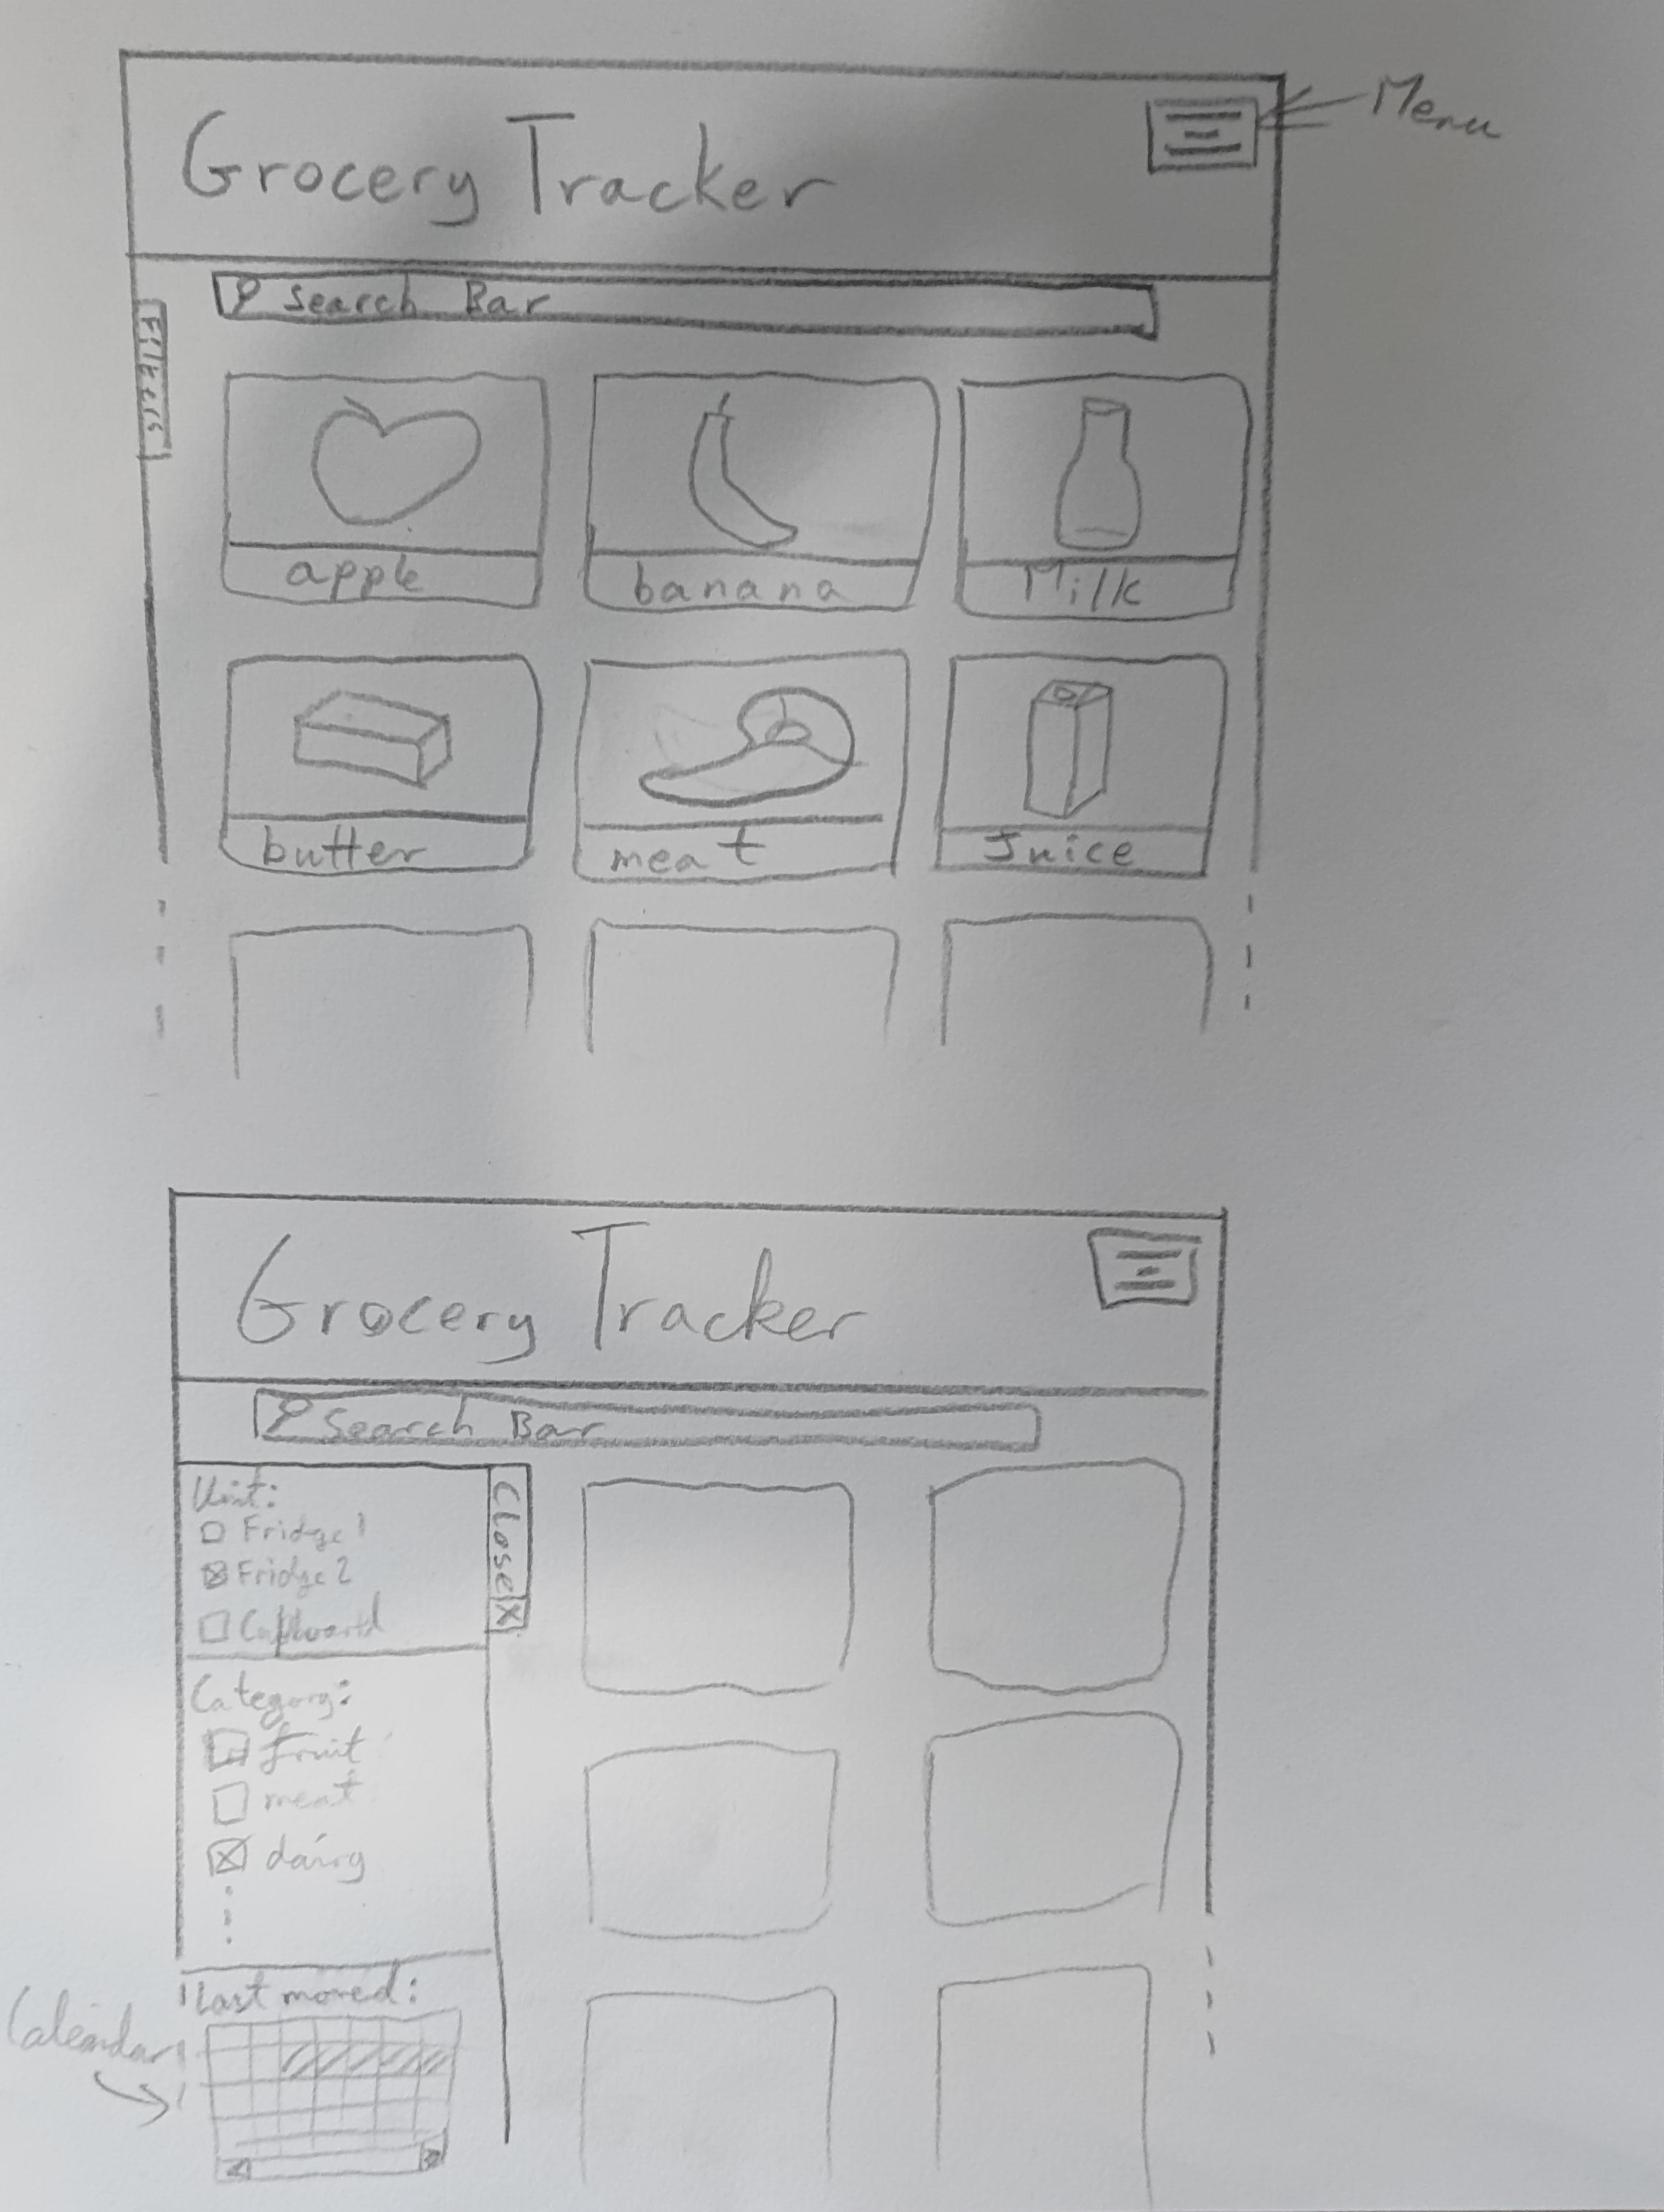 Grocery Tracker
Menu
Search Bar
Filters
apple
banana
Milk
butter
meat
Juice
Grocery Tracker
Search Bar
Close X
Unit:
Fridge 1
Fridge 2
Cupboard
Category:
fruit
meat
dairy
Last moved:
Calendar